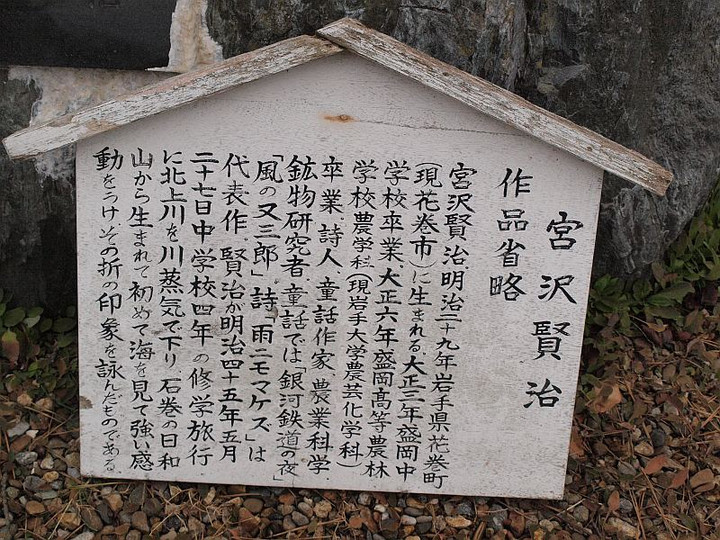 宮沢賢治
作品省略
宮沢賢治、明治二十九年岩手県花巻町
(現花巻市)に生まれる。大正三年盛岡中
学校卒業、大正六年盛岡高等農林
学校農学科(現岩手大学農芸化学科)
卒業、詩人、童話作家、農業科学、
鉱物研究者、童話では「銀河鉄道の夜」
「風の又三郎」、詩「雨ニモマケズ」は
代表作、賢治が明治四十五年五月
二十七日中学校四年の修学旅行
に北上川を川蒸気で下り、石巻の日和
山から生まれて初めて海を見て強い感
動をうけその折の印象を詠んだものである。